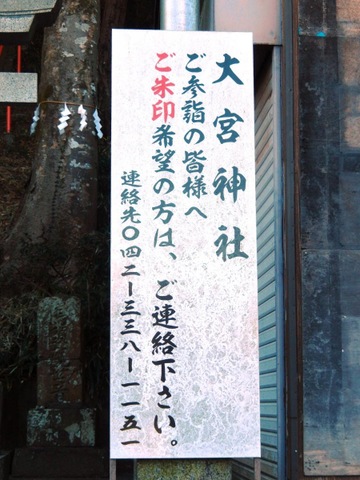 大宮神社
ご参詣の皆様へ
ご朱印希望の方は、ご連絡下さい。
連絡先〇四二ー三三八ー一一五一